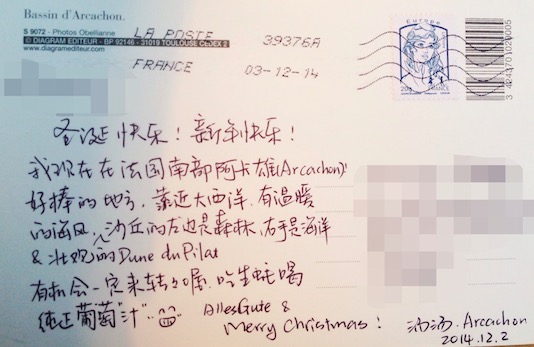 Bassin d'Arcachon.
S 9072 - Photos Obellianne
© DIAGRAM EDITEUR - BP 92146 - 31019 TOULOUSE CEDEX 2
www.diagramediteur.com
LA POSTE
39376A
FRANCE
03-12-14
Europe
20g FRANCE
3 424370 102900 5
圣诞快乐！新年快乐！
我现在在法国南部阿卡雄(Arcachon)!
好棒的地方，靠近大西洋，有温暖
的海风，沙丘的左边是森林，右手是海洋
& 壮观的Dune du Pilat
有机会一定来转转喔，吃生蚝喝
纯正葡萄"汁"
Alles Gute &
Merry Christmas!
汤汤. Arcachon
2014.12.2